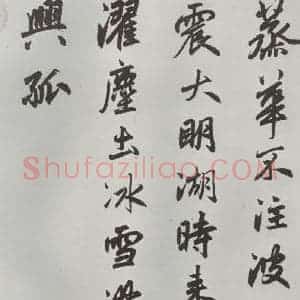 蒸華不注波
震大明湖時来
濯塵土冰雪
興孤
Shufaziliao.COM